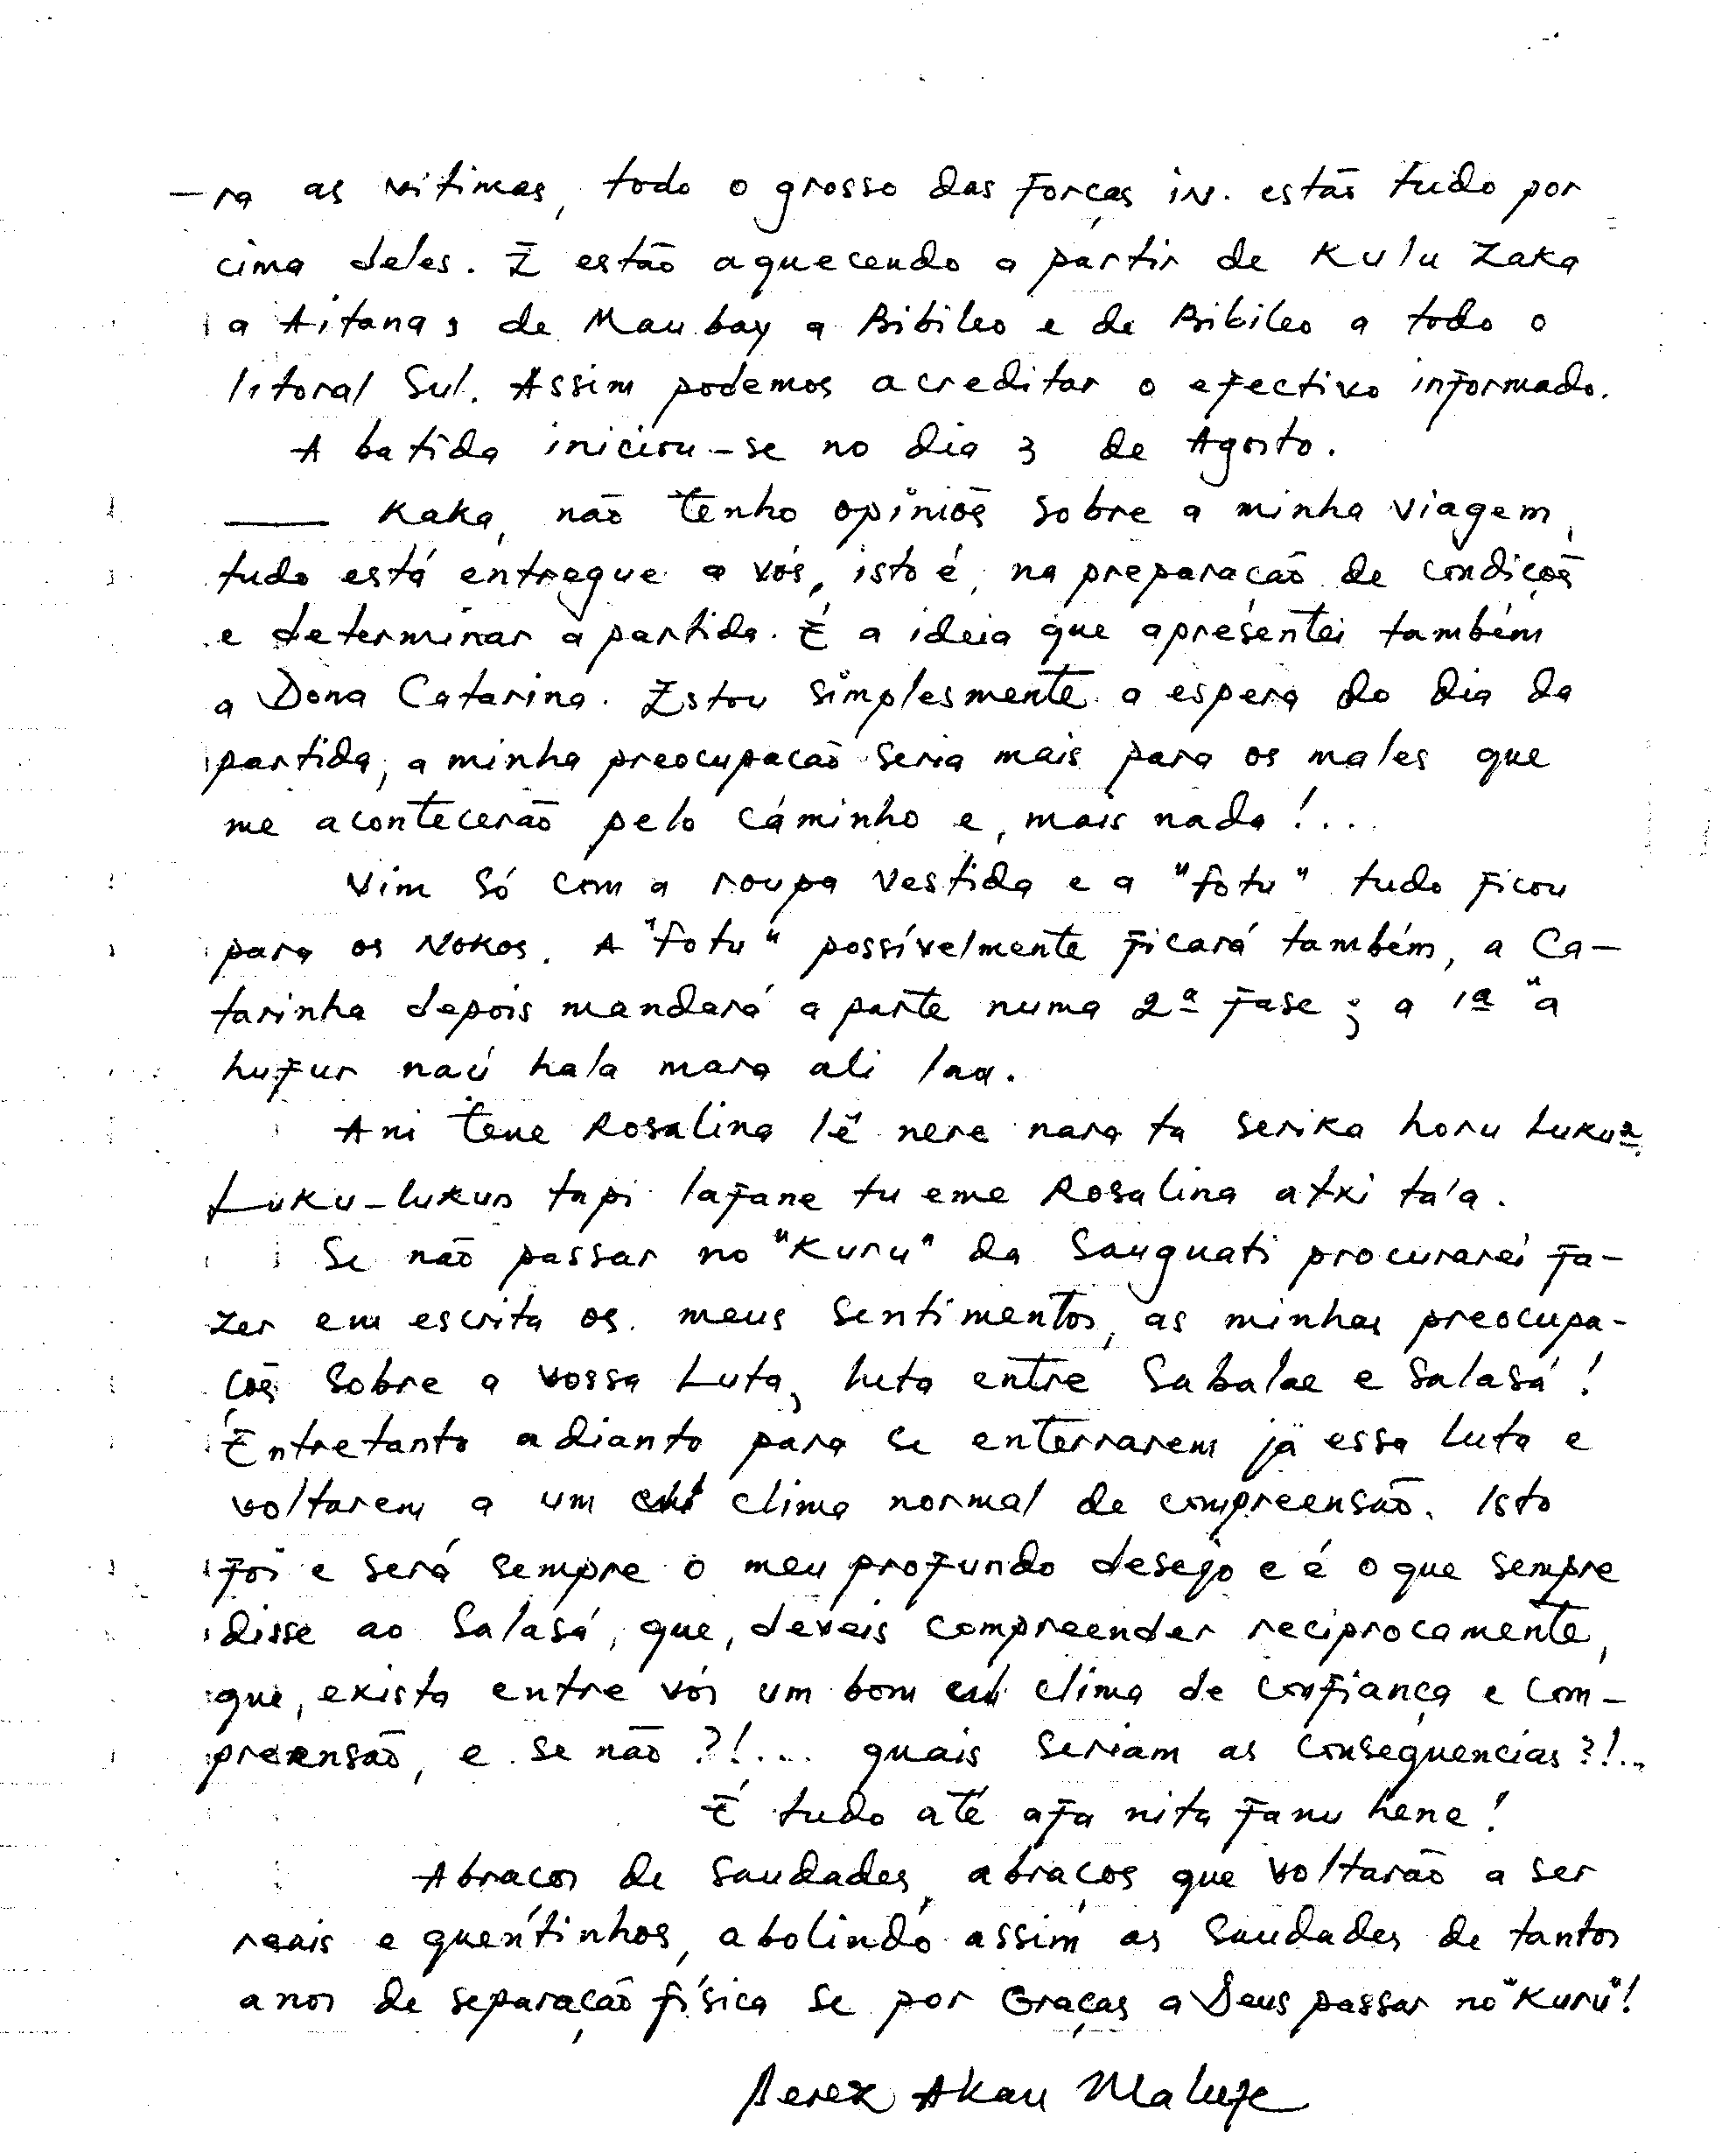 -ra as vitimas, todo o grosso das forças in. estão tudo por
cima deles. E estão aquecendo a partir de Kulu Zaka
a Aitana, de Maubay a Bibileo e de Bibileo a todo o
litoral Sul. Assim podemos acreditar o efectivo informado.
A batida iniciou-se no dia 3 de Agosto.
—— Kaka, não tenho opiniõs sobre a minha viagem,
tudo está entregue a vós, isto é, na preparação de condiçõs
e determinar a partida. É a ideia que apresentei também
a Dona Catarina. Estou simplesmente a espera do dia da
partida, a minha preocupacão seria mais para os males que
me acontecerão pelo cáminho e, mais nada!...
Vim só com a roupa vestida e a "fotu" tudo ficou
para os Nokos. A "fotu" possívelmente ficará também, a Ca-
tarinha depois mandará a parte numa 2ª fase; a 1ª "a
hufur naú hala mara ali laa.
Ani tene Rosalina lê nere nara ta serika horu Luku2
Luku-lukun tapi lafane tu eme Rosalina atxi ta'a.
Se não passar no "Kuru" da Sauguati procurarei fa-
zer em escrita os meus sentimentos, as minhas preocupa-
çõs sobre a vossa Luta, luta entre Sabalae e Salasá!
Entretanto adianto para se enterrarem já essa luta e
voltarem a um clima normal de compreensão. Isto
foi e será sempre o meu profundo desejo e é o que sempre
disse ao Salasá, que, deveis compreender reciprocamente,
que, exista entre vós um bom clima de confiança e com-
preensão, e se não?!... quais seriam as consequencias?!...
É tudo até afa nita fanu hene!
Abraços de saudades, abraços que voltarão a ser
reais e quentinhos, abolindo assim as saudades de tantos
anos de separação física se por Graças a Deus passar no "Kuru"!
Berex Akau Malufe